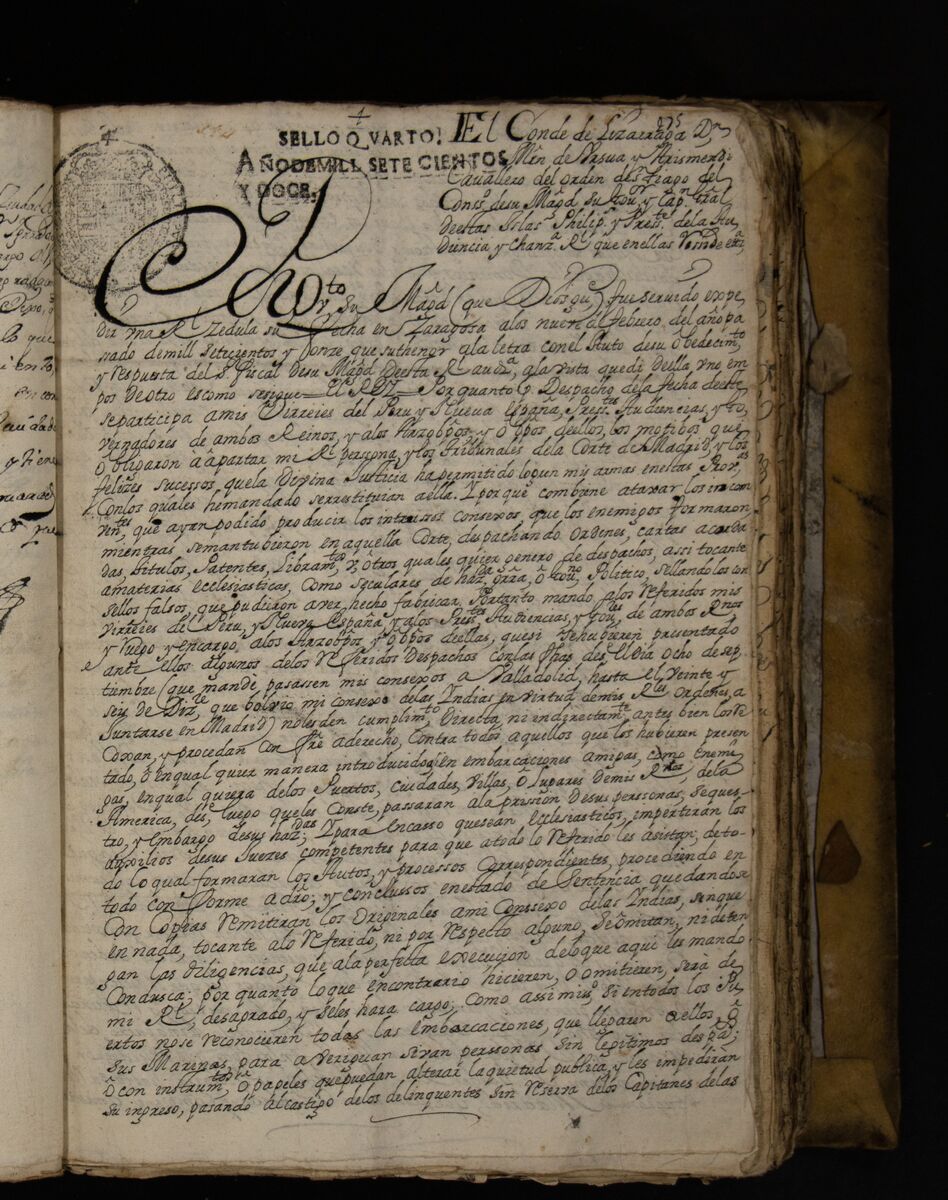 4
SELLO QVARTO!
AÑODEMILL SETE CIENTOS
Y DOCE.
175
El Conde de Lizarraga Dn
Mñ. de Vrsua, y Arismendi
Cavallero del orden de Stiago del
Conso. desu Magd. su Gov.r y Capn. Gral
deestas Islas Philips. y Presste. dela Au
diencia y Chanza. Rl. que enellas Reside etta.
Por quto. Su Magd (que Dios gue) fue servido expe
dir vna Rl. Zedula su fecha en Zaragosa alos nueve de febrero, del año pa
sado demill setecientos y onze, que suthenor ala letra conel Auto desu obedecimto
y respuesta del s.r Fiscal desu Magd deesta Rl. auda., ala vista quedi della vno, em
pos deotro escomo sesigue El REY Por quanto
Despacho dela fecha deeste
separticipa amis Virreies del Peru y Nueva España, Presstes. Audiencias, y Go
vernadores de ambos Reinos, y alos Arzobpos, y obpos deellos, los motibos que
obligaron â apartar mi Rl. persona, y los Tribunales dela Corte de Madrid, y los
felizes sucessos, quela Divina Justicia ha permitido logren mis armas enestas Provas
conlos quales hemandado serrestituian aella. Y porque combiene ataxar los incon
ventes, que ayan podido producir los intrusses consexos, que los enemigos formaron
mientras semantubieron en aquella Corte, despachando ordenes, cartas acorda
das, titulos, Patentes, Libramtos, y otros quales quier genero de despachos, assi tocante
amaterias ecclesiasticas, como seculares de hazda. grra, ô Govno. Politico, sellandolos con
sellos falsos, que pudieron aver hecho fabricar. Portanto mando alos Referidos mis
virreies del Peru, y Nueva España, y alos Presstes. Audiencias, y Goves. de ambos Rnos
y ruego y encargo, alos Arzobpos, y obpos deellas, quesi sehubieren presentado
ante ellos algunos delos Referidos Despachos conlas fhas desde el Dia ocho de sep
tiembre (que mandé passassen mis consexos a Valladolid, hasta el veinte y
seis de Dize. que bolvio mi consexo delas Indias en virtud demis Rles. ordenes, a
Juntarse en Madrid) nolesden cumplimto Directa, ni endirectamte. antes bien los re
coxan, y procedan conforme aderecho, contra todos aquellos que los hubieren presen
tado, ô enqual quier manera introducidos en embarcaciones amigas, como Enemi
gas, enqual quiera delos Puertos, Cuidades, Villas, ô lugares demis Rnos, dela
America, des, luego queles Conste, passaran ala prission desus perssonas, seques
tro, y embargo desus hazdas; Y para encasso quesean Ecclesiasticos, impertiran los
auxilios desus Jueces competentes para que atodo lo Referido les asistan; deto
do lo qual formaran los Autos, y processos Correspondientes, procediendo en
todo conforme adro; y conclussos enestado de Sentencia quedandose
Con Copias Remitiran los originales ami Conssexo delas Indias, sinque
en nada, tocante alo Referido, ni por respecto alguno, se ômitan, ni deten
gan las diligencias, que ala perfecta execucion deloque aqui les mando
Condusca; porquanto loque encontrario hicieren, ô omitieren, serà de
mi Rl. desagrado, y seles hara cargo; Como assimismo si entodos los Pu
ertos nose reconocieren todas las embarcaciones, que llegaren aellos, ô
sus Marinas, para averiguar sivan perssonas sin legitimos despos.
ô con instrumtos, ô papeles quepuedan alterar laquietud publica, y les impediran
su ingreso, pasando alcastigo delos delinquentes sin Reserva delos Capitanes delas